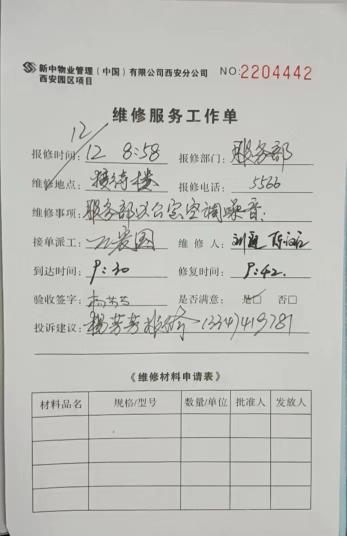 新中物业管理（中国）有限公司西安分公司 NO:2204442
西安园区项目
维修服务工作单
报修时间：12/12 8:58 报修部门：服务部
维修地点：接待楼 报修电话：5566
维修事项：服务部办公室空调噪音.
接单派工： 维修人：刘通
到达时间：9:30 修复时间：9:42.
验收签字：杨芳芳 是否满意：是☑ 否□
投诉建议：杨芳芳 13347419781
《维修材料申请表》
材料品名 规格/型号 数量/单位 批准人 发放人